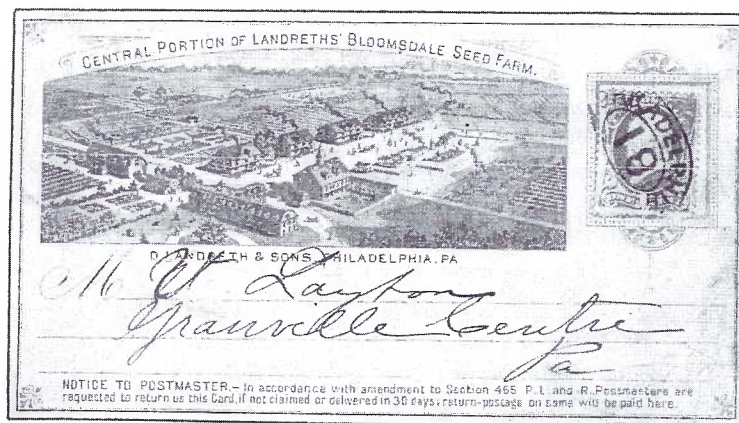 CENTRAL PORTION OF LANDRETHS' BLOOMSDALE SEED FARM.
PHILADELPHIA
PA.
D. LANDRETH & SONS, PHILADELPHIA, PA
M W. Layton
Granville Centre
Pa
NOTICE TO POSTMASTER.– In accordance with amendment to Section 465 P. L. and R. Postmasters are
requested to return us this Card, if not claimed or delivered in 30 days; return-postage on same will be paid here.